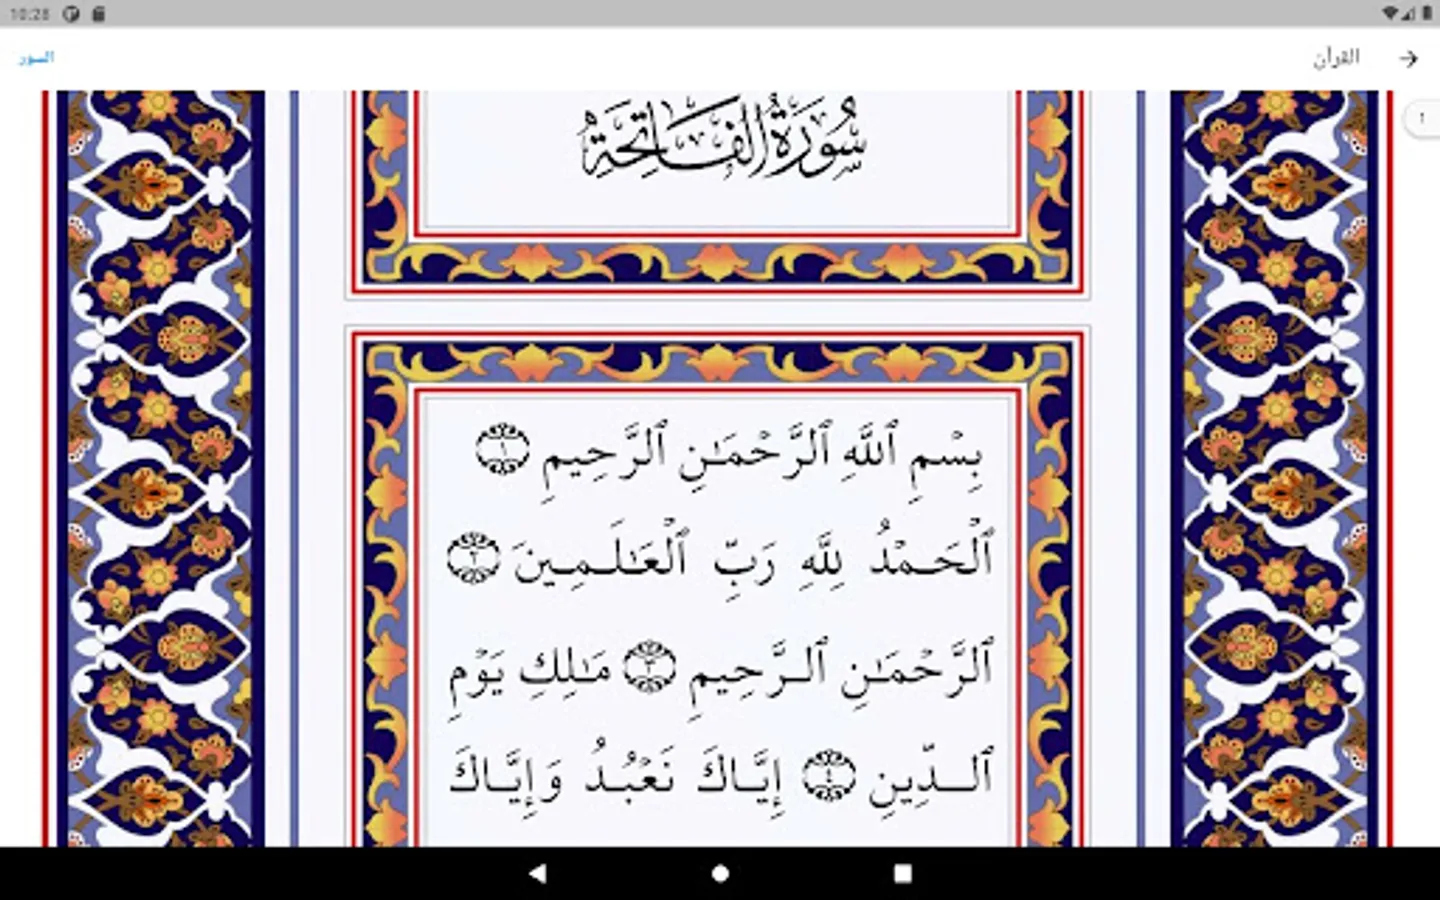 10:28
القرآن
السور
١
سُورَةُ الفَاتِحَةِ
بِسْمِ ٱللَّهِ ٱلرَّحْمَـٰنِ ٱلرَّحِيمِ ١
ٱلْحَمْدُ لِلَّهِ رَبِّ ٱلْعَـٰلَمِينَ ٢
ٱلرَّحْمَـٰنِ ٱلرَّحِيمِ ٣ مَـٰلِكِ يَوْمِ
ٱلدِّينِ ٤ إِيَّاكَ نَعْبُدُ وَإِيَّاكَ